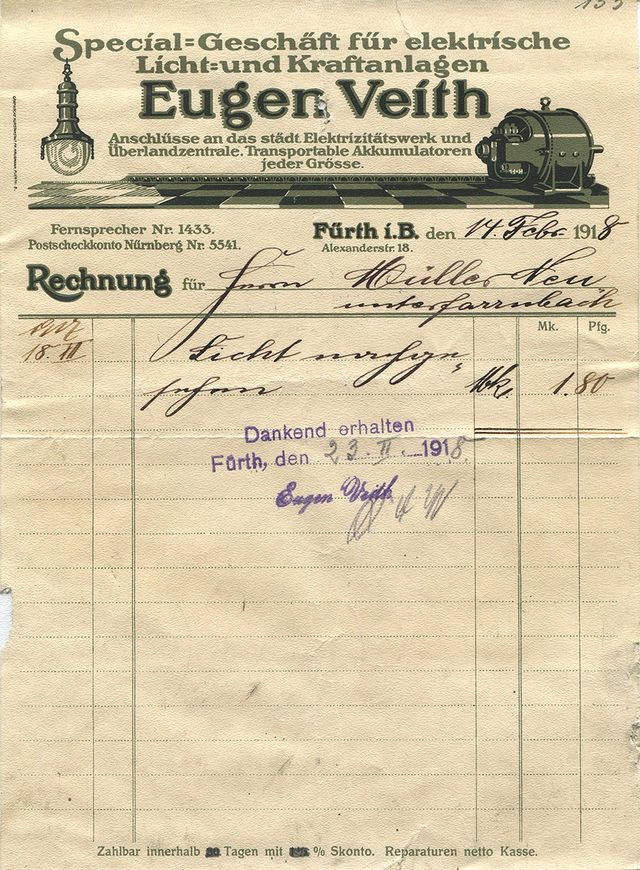 Special=Geschäft für elektrische
Licht=und Kraftanlagen
Eugen Veith
Anschlüsse an das städt. Elektrizitätswerk und
Überlandzentrale. Transportable Akkumulatoren
jeder Grösse.
Fernsprecher Nr. 1433.
Postscheckkonto Nürnberg Nr. 5541.
Fürth i.B. den 14. Febr. 1918
Alexanderstr. 18.
Rechnung für Herrn Müller Neu
unterfarrnbach
Mk. Pfg.
18. II Licht nachge
sehen Mk. 1.80
Dankend erhalten
Fürth, den 23. II. 1918
Eugen Veith
Zahlbar innerhalb Tagen mit % Skonto. Reparaturen netto Kasse.